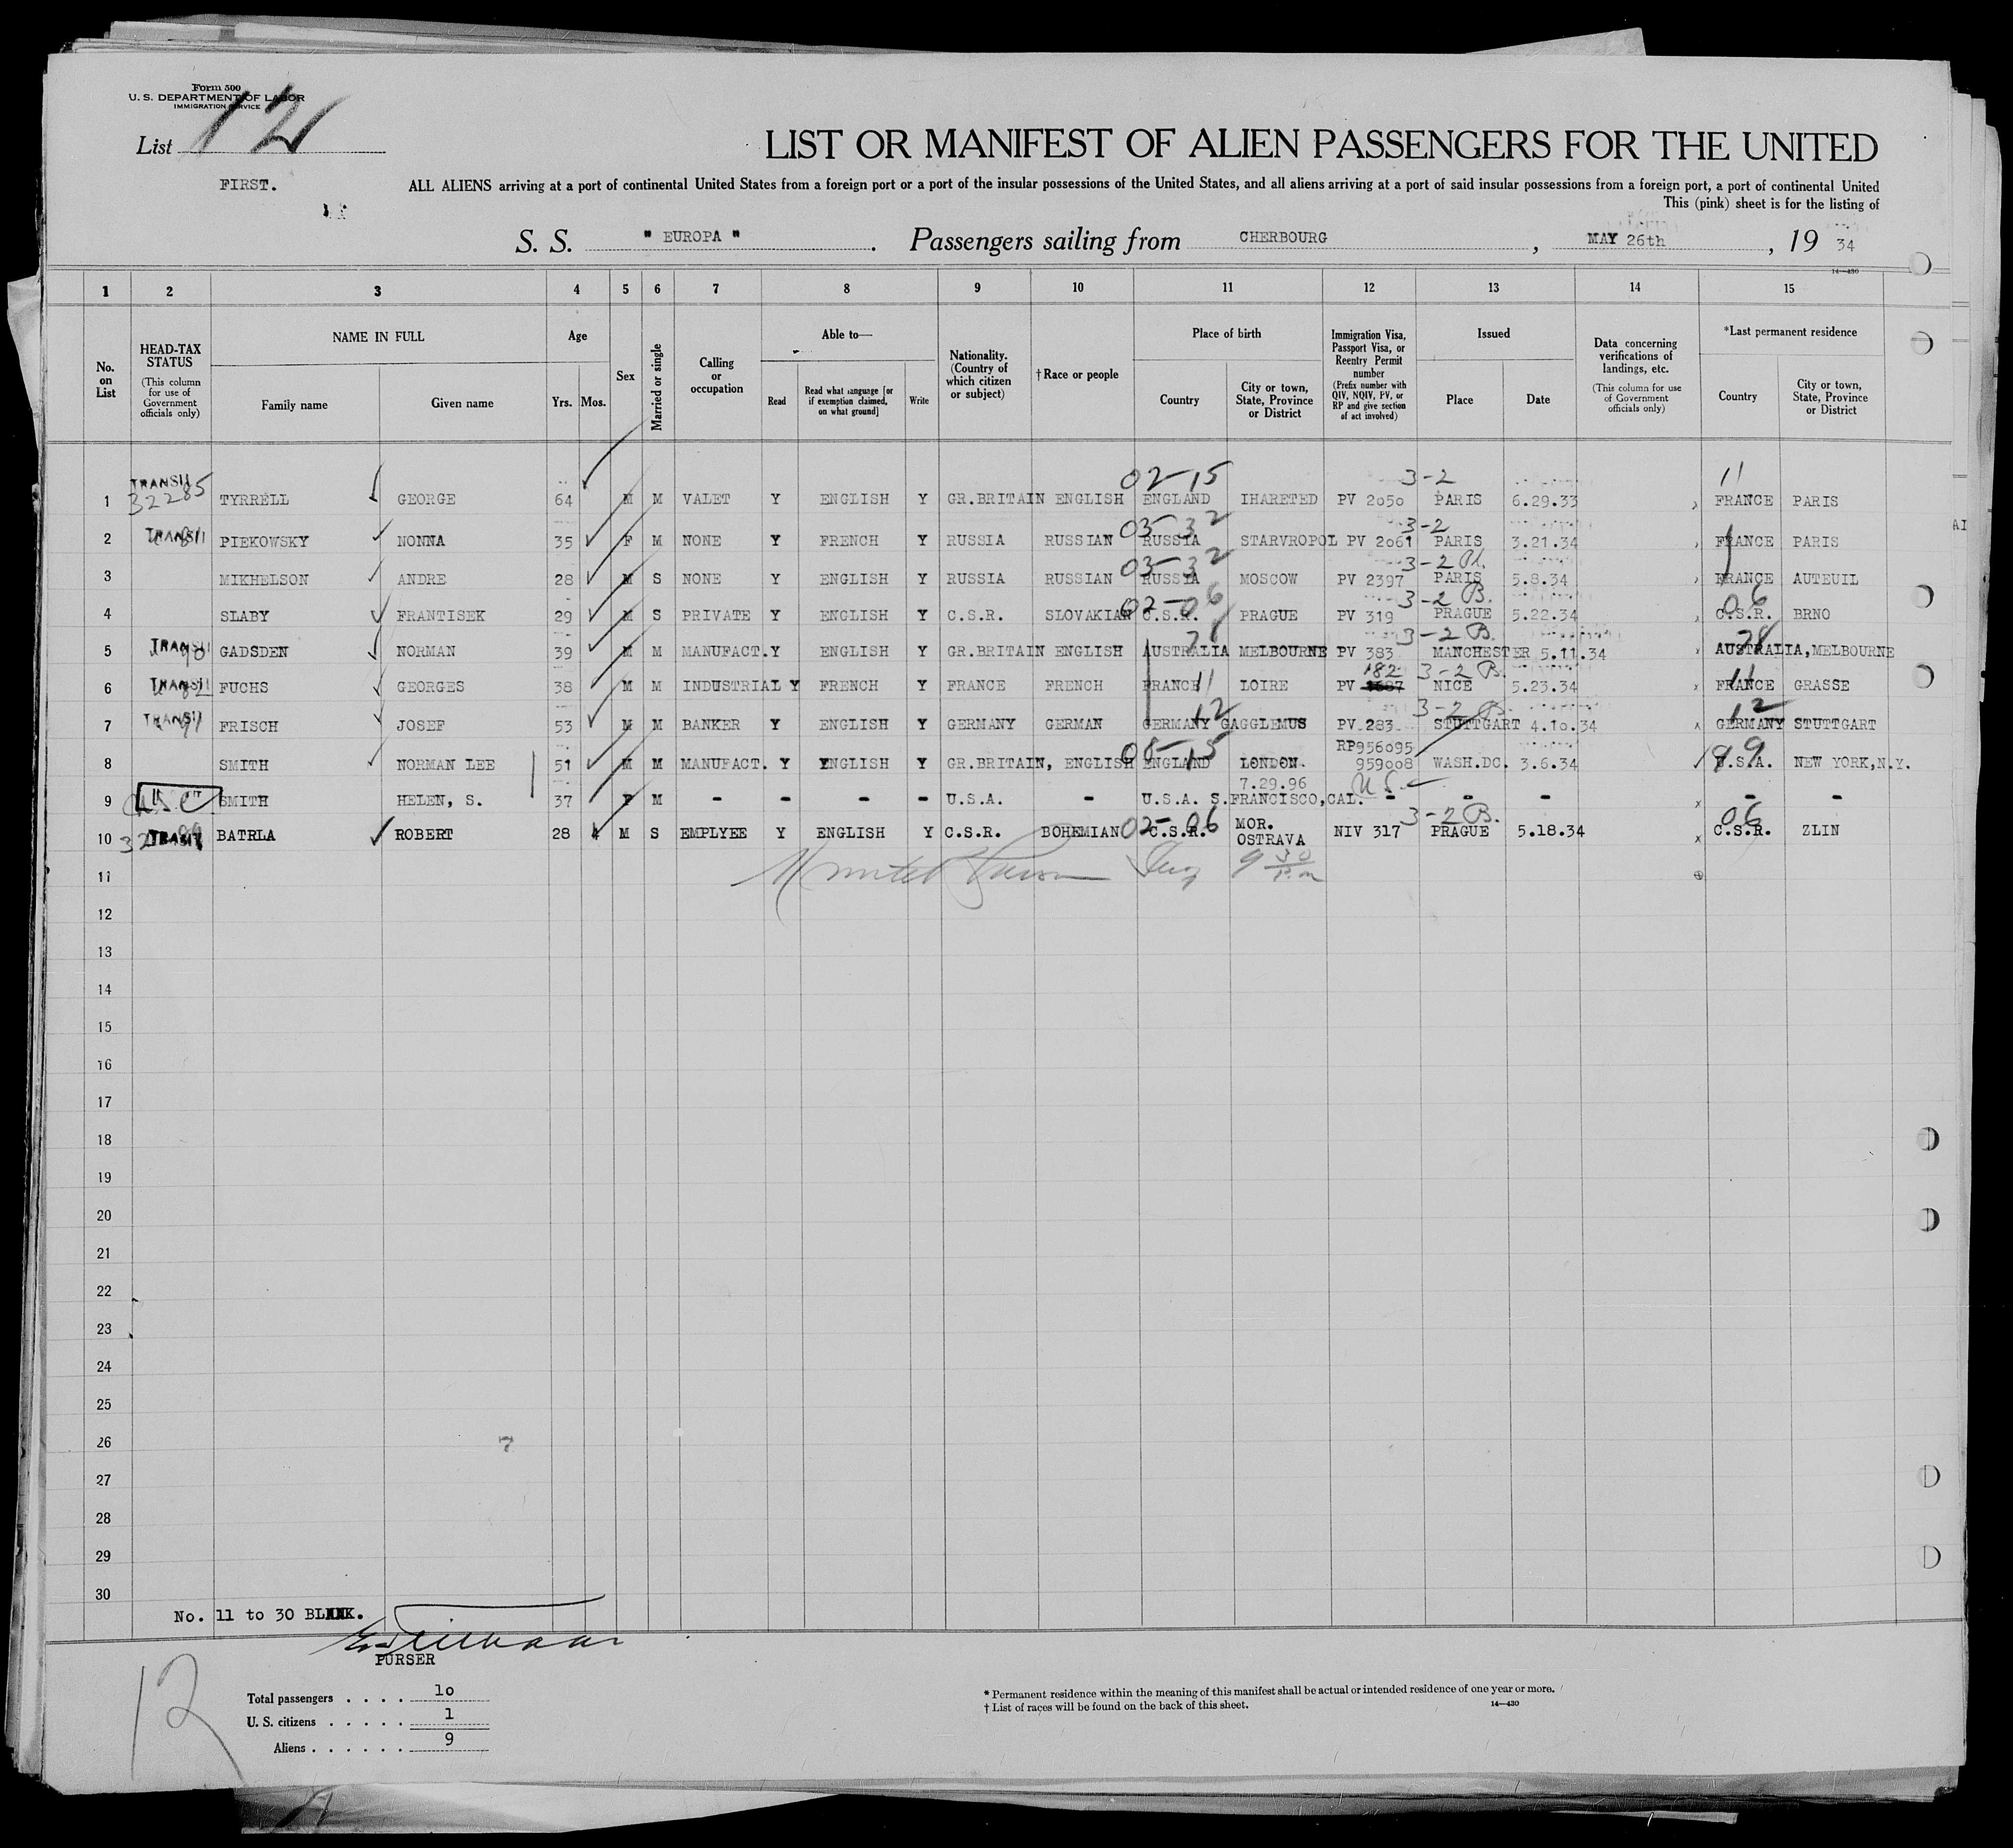 Form 500
U. S. DEPARTMENT OF LABOR
IMMIGRATION SERVICE
List 12
LIST OR MANIFEST OF ALIEN PASSENGERS FOR THE UNITED
FIRST.
ALL ALIENS arriving at a port of continental United States from a foreign port or a port of the insular possessions of the United States, and all aliens arriving at a port of said insular possessions from a foreign port, a port of continental United
This (pink) sheet is for the listing of
S. S. " EUROPA " . Passengers sailing from CHERBOURG , MAY 26th , 19 34
14—430
1 2 3 4 5 6 7 8 9 10 11 12 13 14 15
No. on List
HEAD-TAX STATUS (This column for use of Government officials only)
NAME IN FULL
Family name Given name
Age
Yrs. Mos.
Sex
Married or single
Calling or occupation
Able to—
Read
Read what language [or if exemption claimed, on what ground]
Write
Nationality. (Country of which citizen or subject)
† Race or people
Place of birth
Country
City or town, State, Province or District
Immigration Visa, Passport Visa, or Reentry Permit number (Prefix number with QIV, NQIV, PV, or RP and give section of act involved)
Issued
Place Date
Data concerning verifications of landings, etc. (This column for use of Government officials only)
*Last permanent residence
Country
City or town, State, Province or District
TRANSIT 02-15 3-2 11
1 32285 TYRRELL GEORGE 64 M M VALET Y ENGLISH Y GR.BRITAIN ENGLISH ENGLAND IHARETED PV 2050 PARIS 6.29.33 FRANCE PARIS
03-32 3-2
2 TRANSIT PIEKOWSKY NONNA 35 F M NONE Y FRENCH Y RUSSIA RUSSIAN RUSSIA STARVROPOL PV 2061 PARIS 3.21.34 FRANCE PARIS
03-32 3-2
3 MIKHELSON ANDRE 28 M S NONE Y ENGLISH Y RUSSIA RUSSIAN RUSSIA MOSCOW PV 2397 PARIS 5.8.34 FRANCE AUTEUIL
02-06 3-2 B. 06
4 SLABY FRANTISEK 29 M S PRIVATE Y ENGLISH Y C.S.R. SLOVAKIAN C.S.R. PRAGUE PV 319 PRAGUE 5.22.34 C.S.R. BRNO
3-2 B. 28
5 TRANSIT GADSDEN NORMAN 39 M M MANUFACT. Y ENGLISH Y GR.BRITAIN ENGLISH AUSTRALIA MELBOURNE PV 383 MANCHESTER 5.11.34 AUSTRALIA, MELBOURNE
11 182 3-2 B. 11
6 TRANSIT FUCHS GEORGES 38 M M INDUSTRIAL Y FRENCH Y FRANCE FRENCH FRANCE LOIRE PV NICE 5.23.34 FRANCE GRASSE
12 3-2 B. 12
7 TRANSIT FRISCH JOSEF 53 M M BANKER Y ENGLISH Y GERMANY GERMAN GERMANY GAGGLEMUS PV 283 STUTTGART 4.10.34 GERMANY STUTTGART
RP956095 99
8 SMITH NORMAN LEE 51 M M MANUFACT. Y ENGLISH Y GR.BRITAIN, ENGLISH ENGLAND LONDON 959008 WASH.DC. 3.6.34 U.S.A. NEW YORK,N.Y.
7.29.96
9 USC SMITH HELEN, S. 37 F M - - - - U.S.A. - U.S.A. S.FRANCISCO,CAL. - - - - -
02-06 3-2 B. 06
10 TRANSIT BATRLA ROBERT 28 4 M S EMPLYEE Y ENGLISH Y C.S.R. BOHEMIAN C.S.R. MOR. OSTRAVA NIV 317 PRAGUE 5.18.34 C.S.R. ZLIN
11 9 30 P.m
12
13
14
15
16
17
18
19
20
21
22
23
24
25
26
27
28
29
30
No. 11 to 30 BLANK.
PURSER
12
Total passengers . . . . 10
U. S. citizens . . . . . 1
Aliens . . . . . . 9
* Permanent residence within the meaning of this manifest shall be actual or intended residence of one year or more.
† List of races will be found on the back of this sheet.
14—430